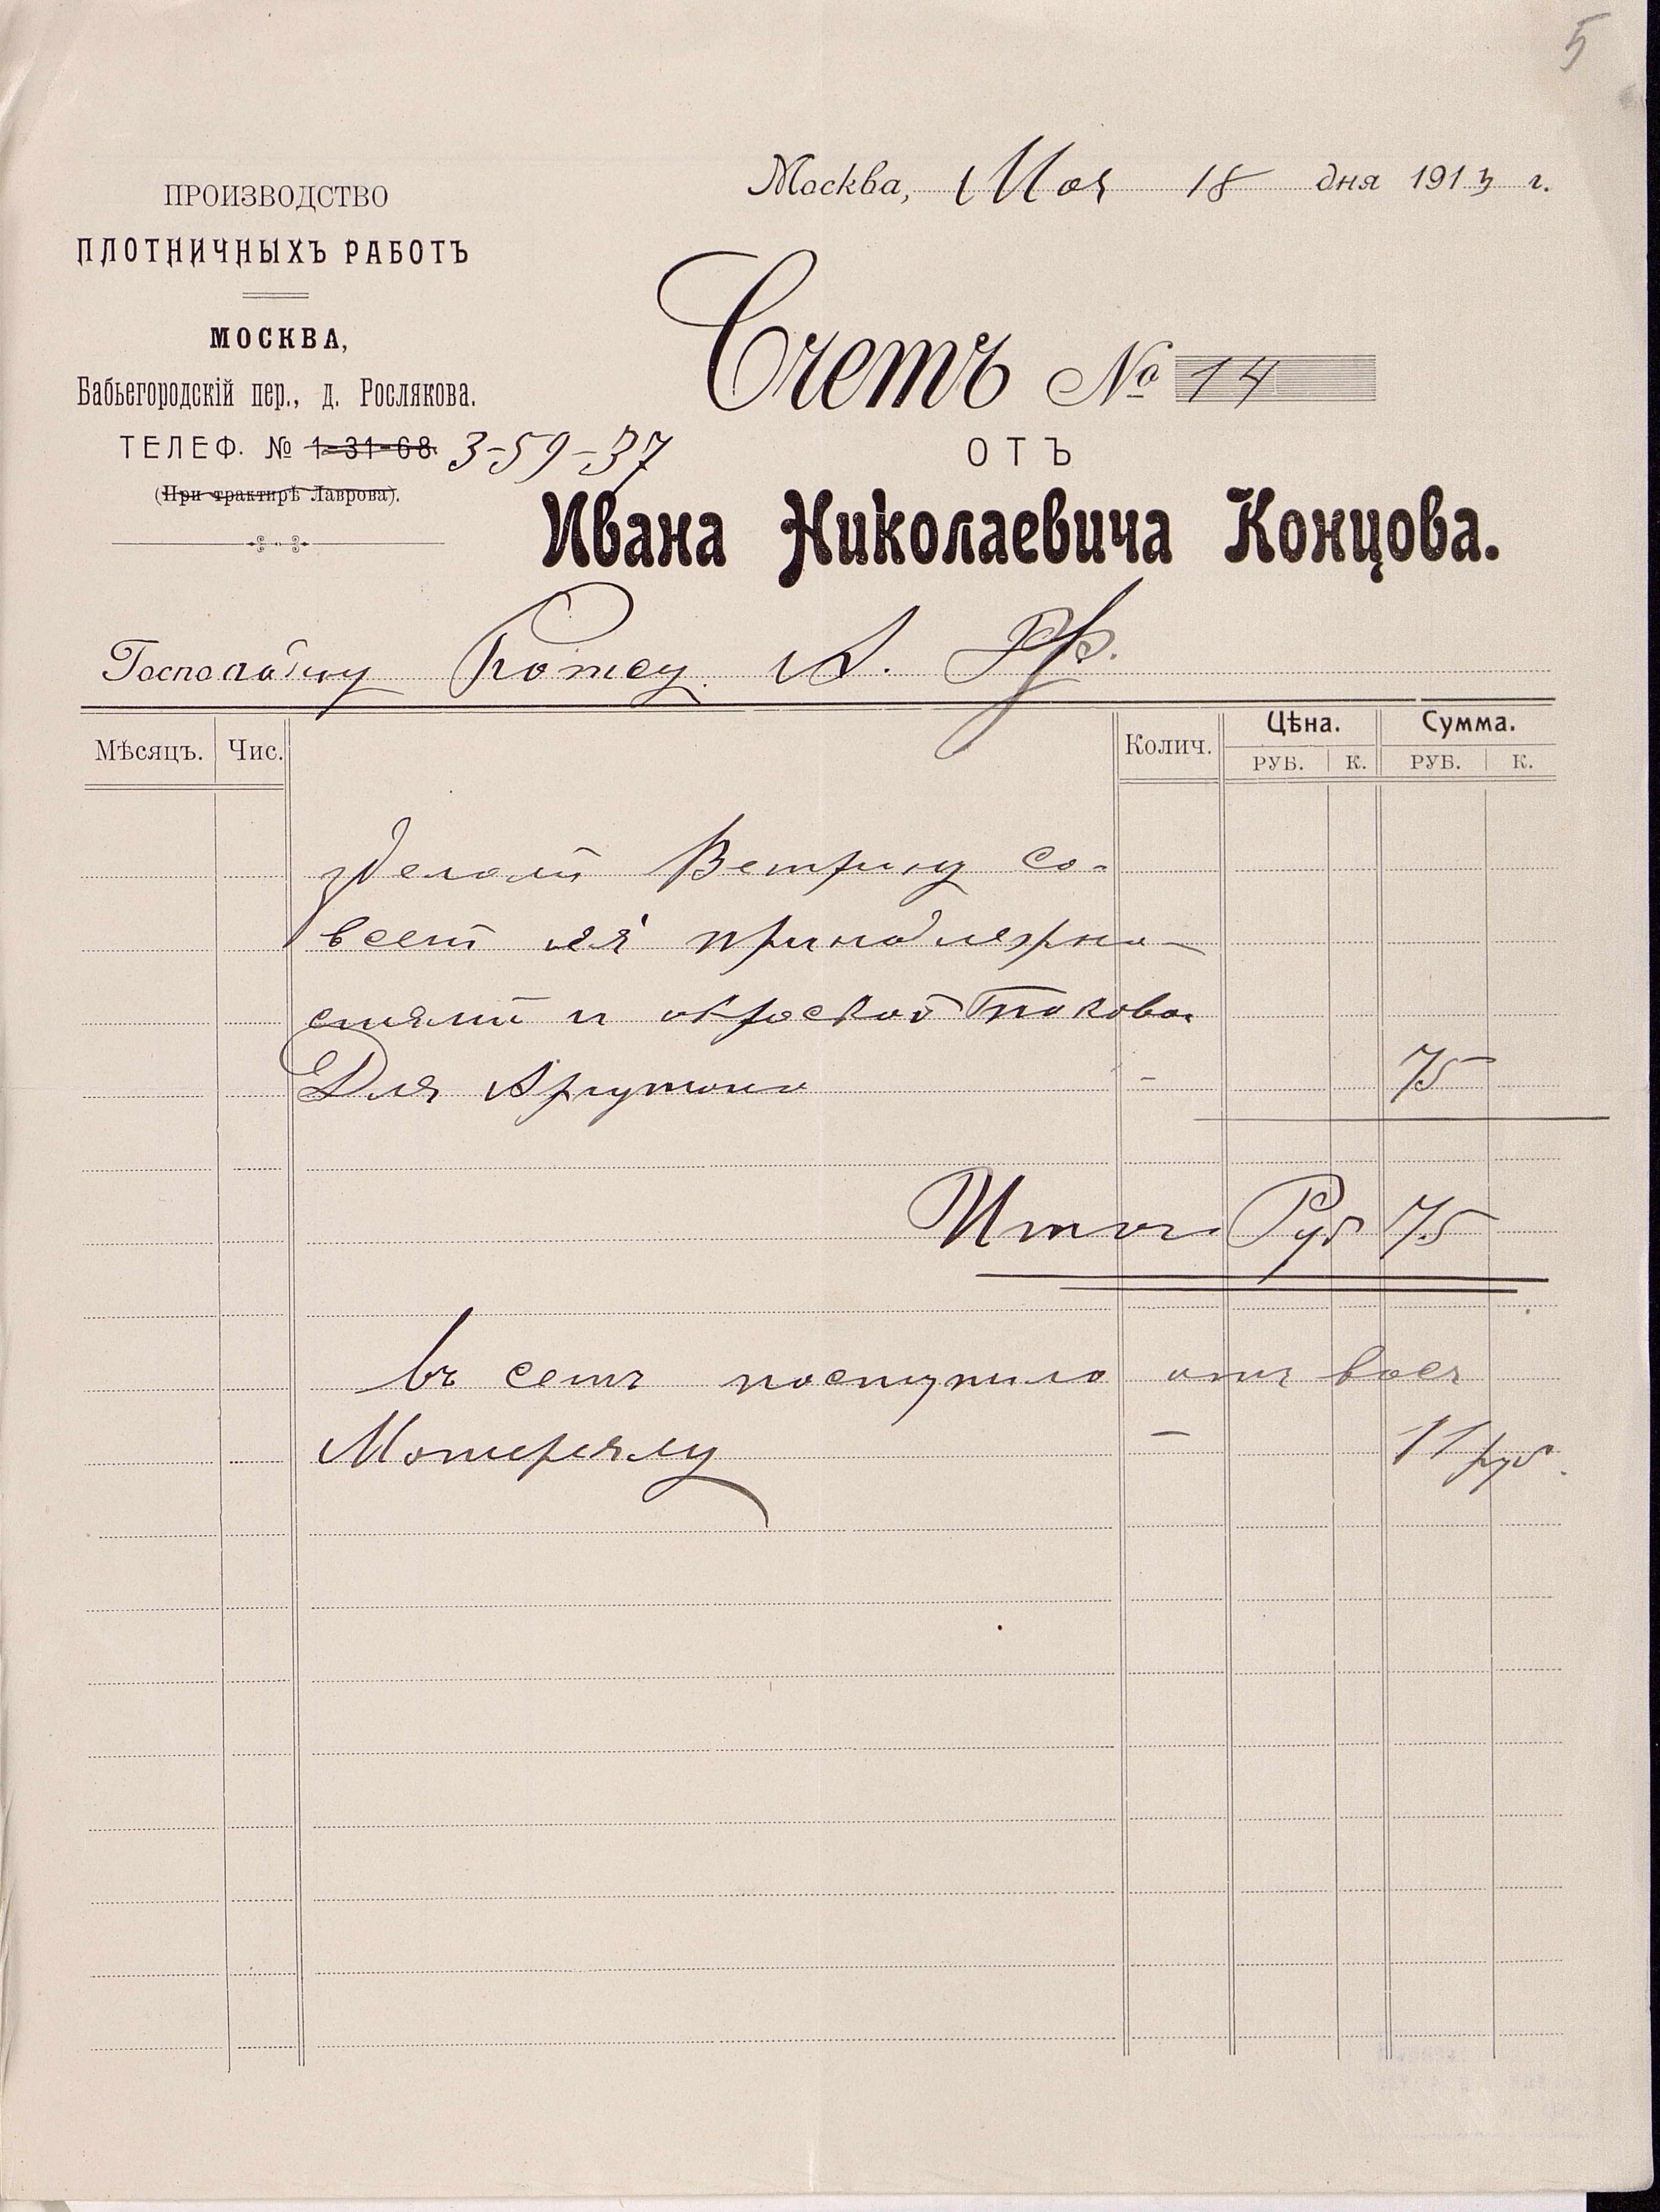 5
Москва, Мая 18 дня 1913 г.
ПРОИЗВОДСТВО
ПЛОТНИЧНЫХЪ РАБОТЪ
МОСКВА,
Бабьегородскій пер., д. Рослякова.
ТЕЛЕФ. № 1-31-68. 3-59-37
(При трактирѣ Лаврова).
Счетъ № 14
ОТЪ
Ивана Николаевича Концова.
Господину Котсу А. Ф.
Мѣсяцъ. Чис. Колич. Цѣна. Сумма.
РУБ. К. РУБ. К.
зделали Ветрину со
всеми ея принадлежно
стями и окраской таковой
Для Аргутона - 75
Итого Руб 75
въ сетъ поступило отъ васъ
Матереялу - 11 руб.